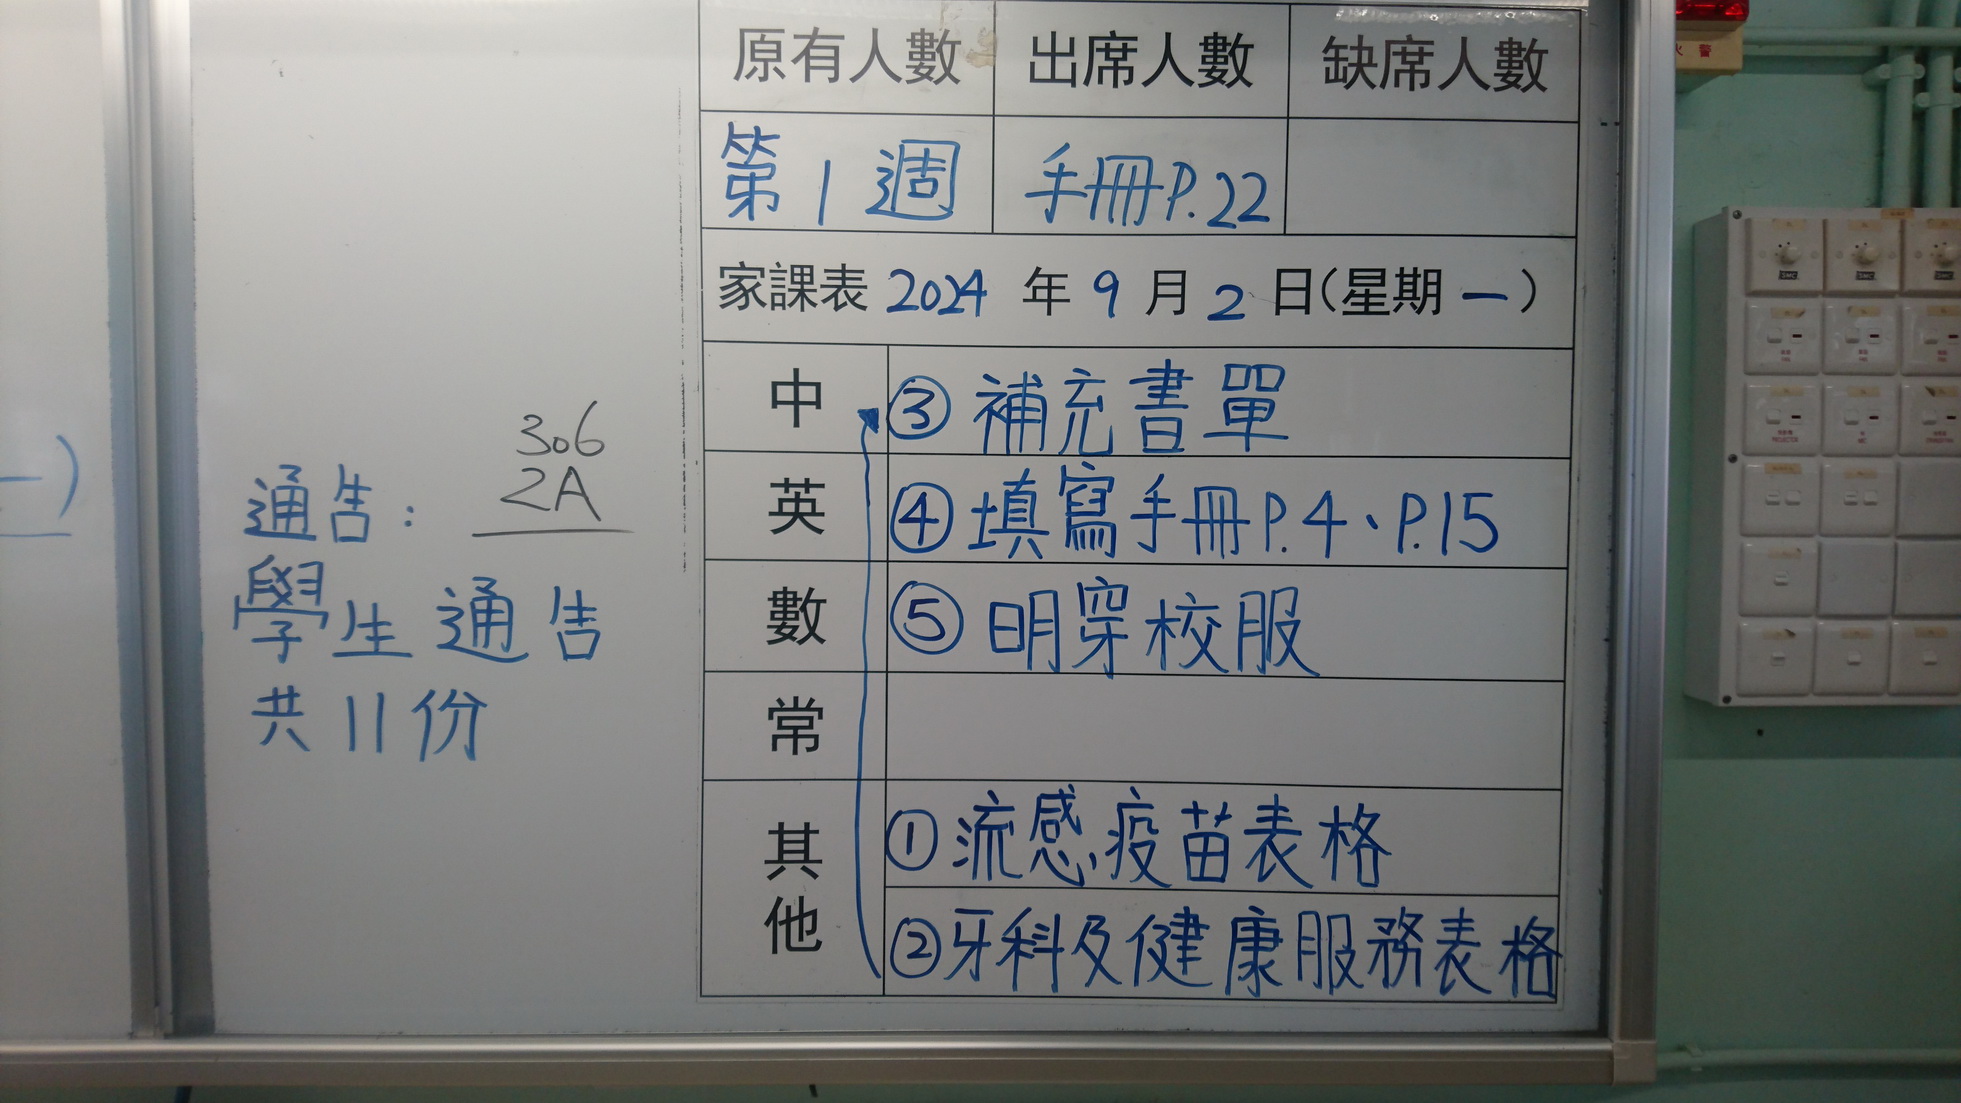 原有人數 出席人數 缺席人數
第1週 手冊P.22
家課表 2024 年 9 月 2 日(星期 一 )
中 ③ 補充書單
英 ④ 填寫手冊P.4、P.15
數 ⑤ 明穿校服
常
其他 ① 流感疫苗表格
② 牙科及健康服務表格
306
2A
通告:
學生通告
共11份
一)
火警